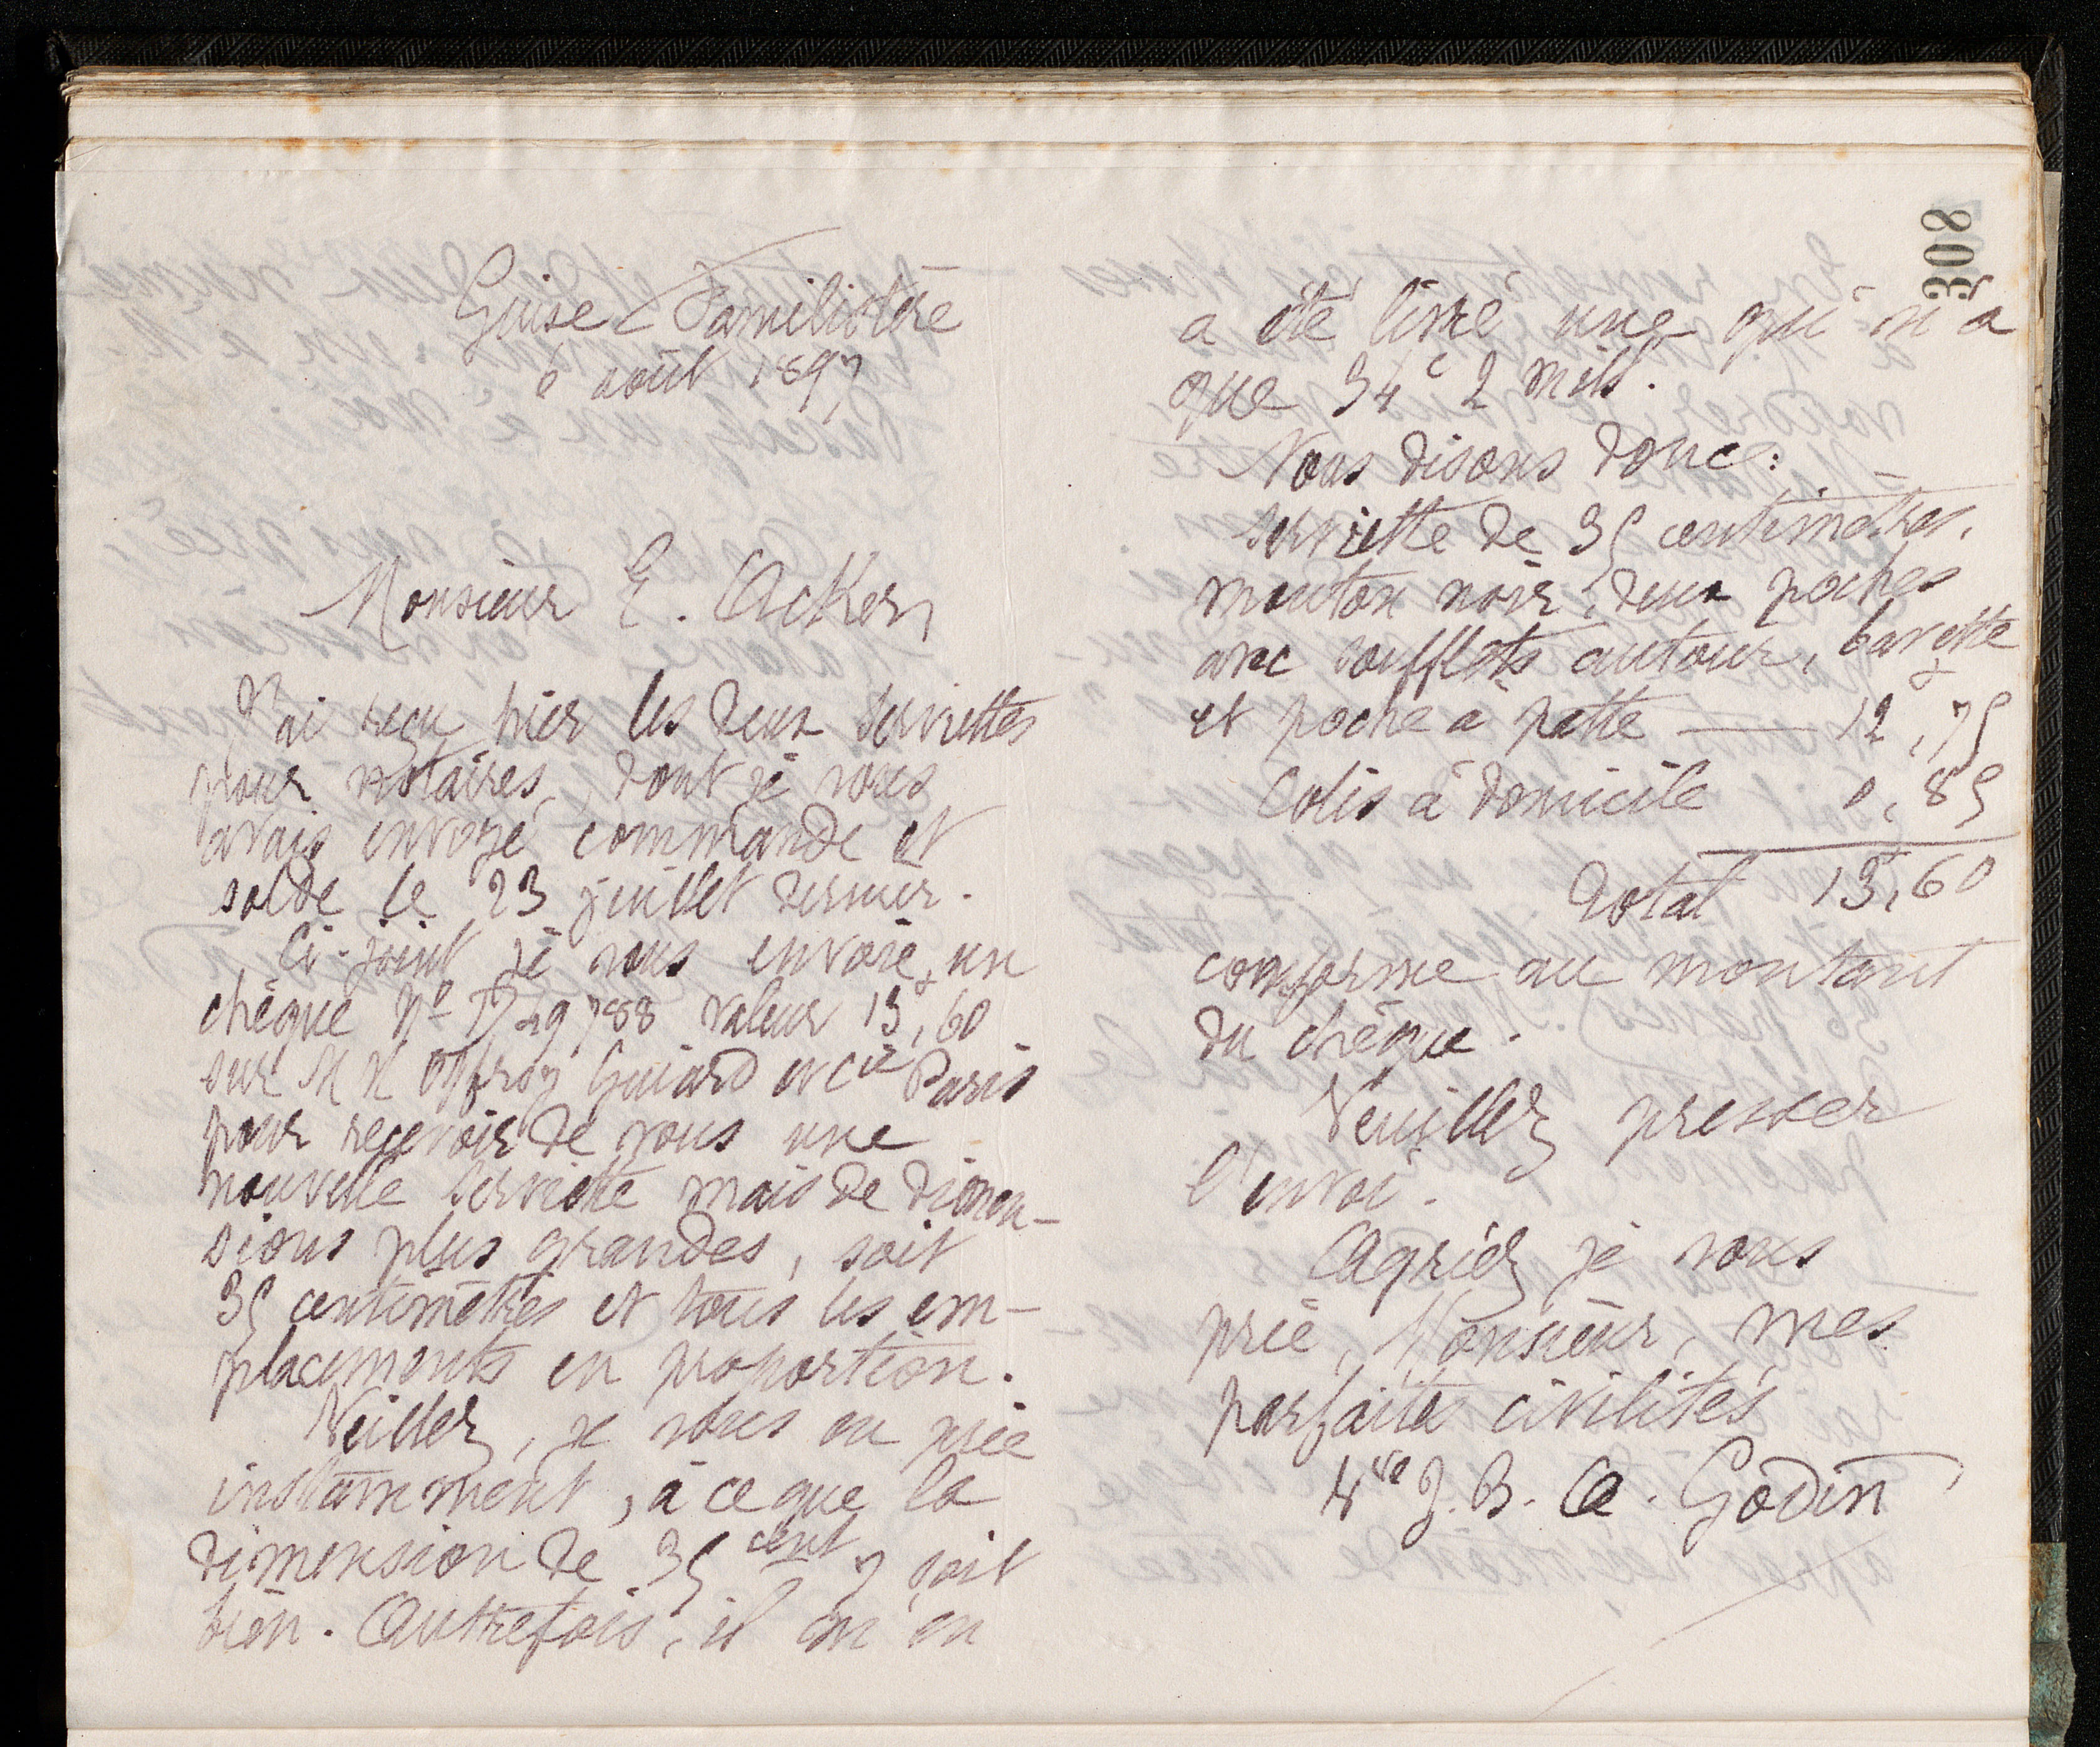 308
Guise Familistère
6 août 1897
Monsieur E. Acker,
J'ai reçu hier les deux serviettes
pour notaires, dont je vous
avais envoyé commande et
solde le 23 juillet dernier.
Ci-joint je vous envoie un
chèque No D 49788 valeur 13f,60
sur MM Offroy Guiard et Cie Paris
pour recevoir de vous une
nouvelle serviette mais de dimen-
sions plus grandes, soit
35 centimètres et tous les em-
placements en proportion.
Veillez, je vous en prie
instamment, à ce que la
dimension de 35 cent y soit
bien. Autrefois, il m'en
a été livré une qui n'a
que 34c 2 mill.
Nous disons donc :
serviette de 35 centimètres.
mouton noir, deux poches
avec soufflets autour, bavette
et poche à patte — 12f,75
Colis à domicile 0,85
Total 13f,60
conforme au montant
du chèque.
Veuillez presser
l'envoi.
Agréez je vous
prie, Monsieur, mes
parfaites civilités
Vve J. B. A. Godin